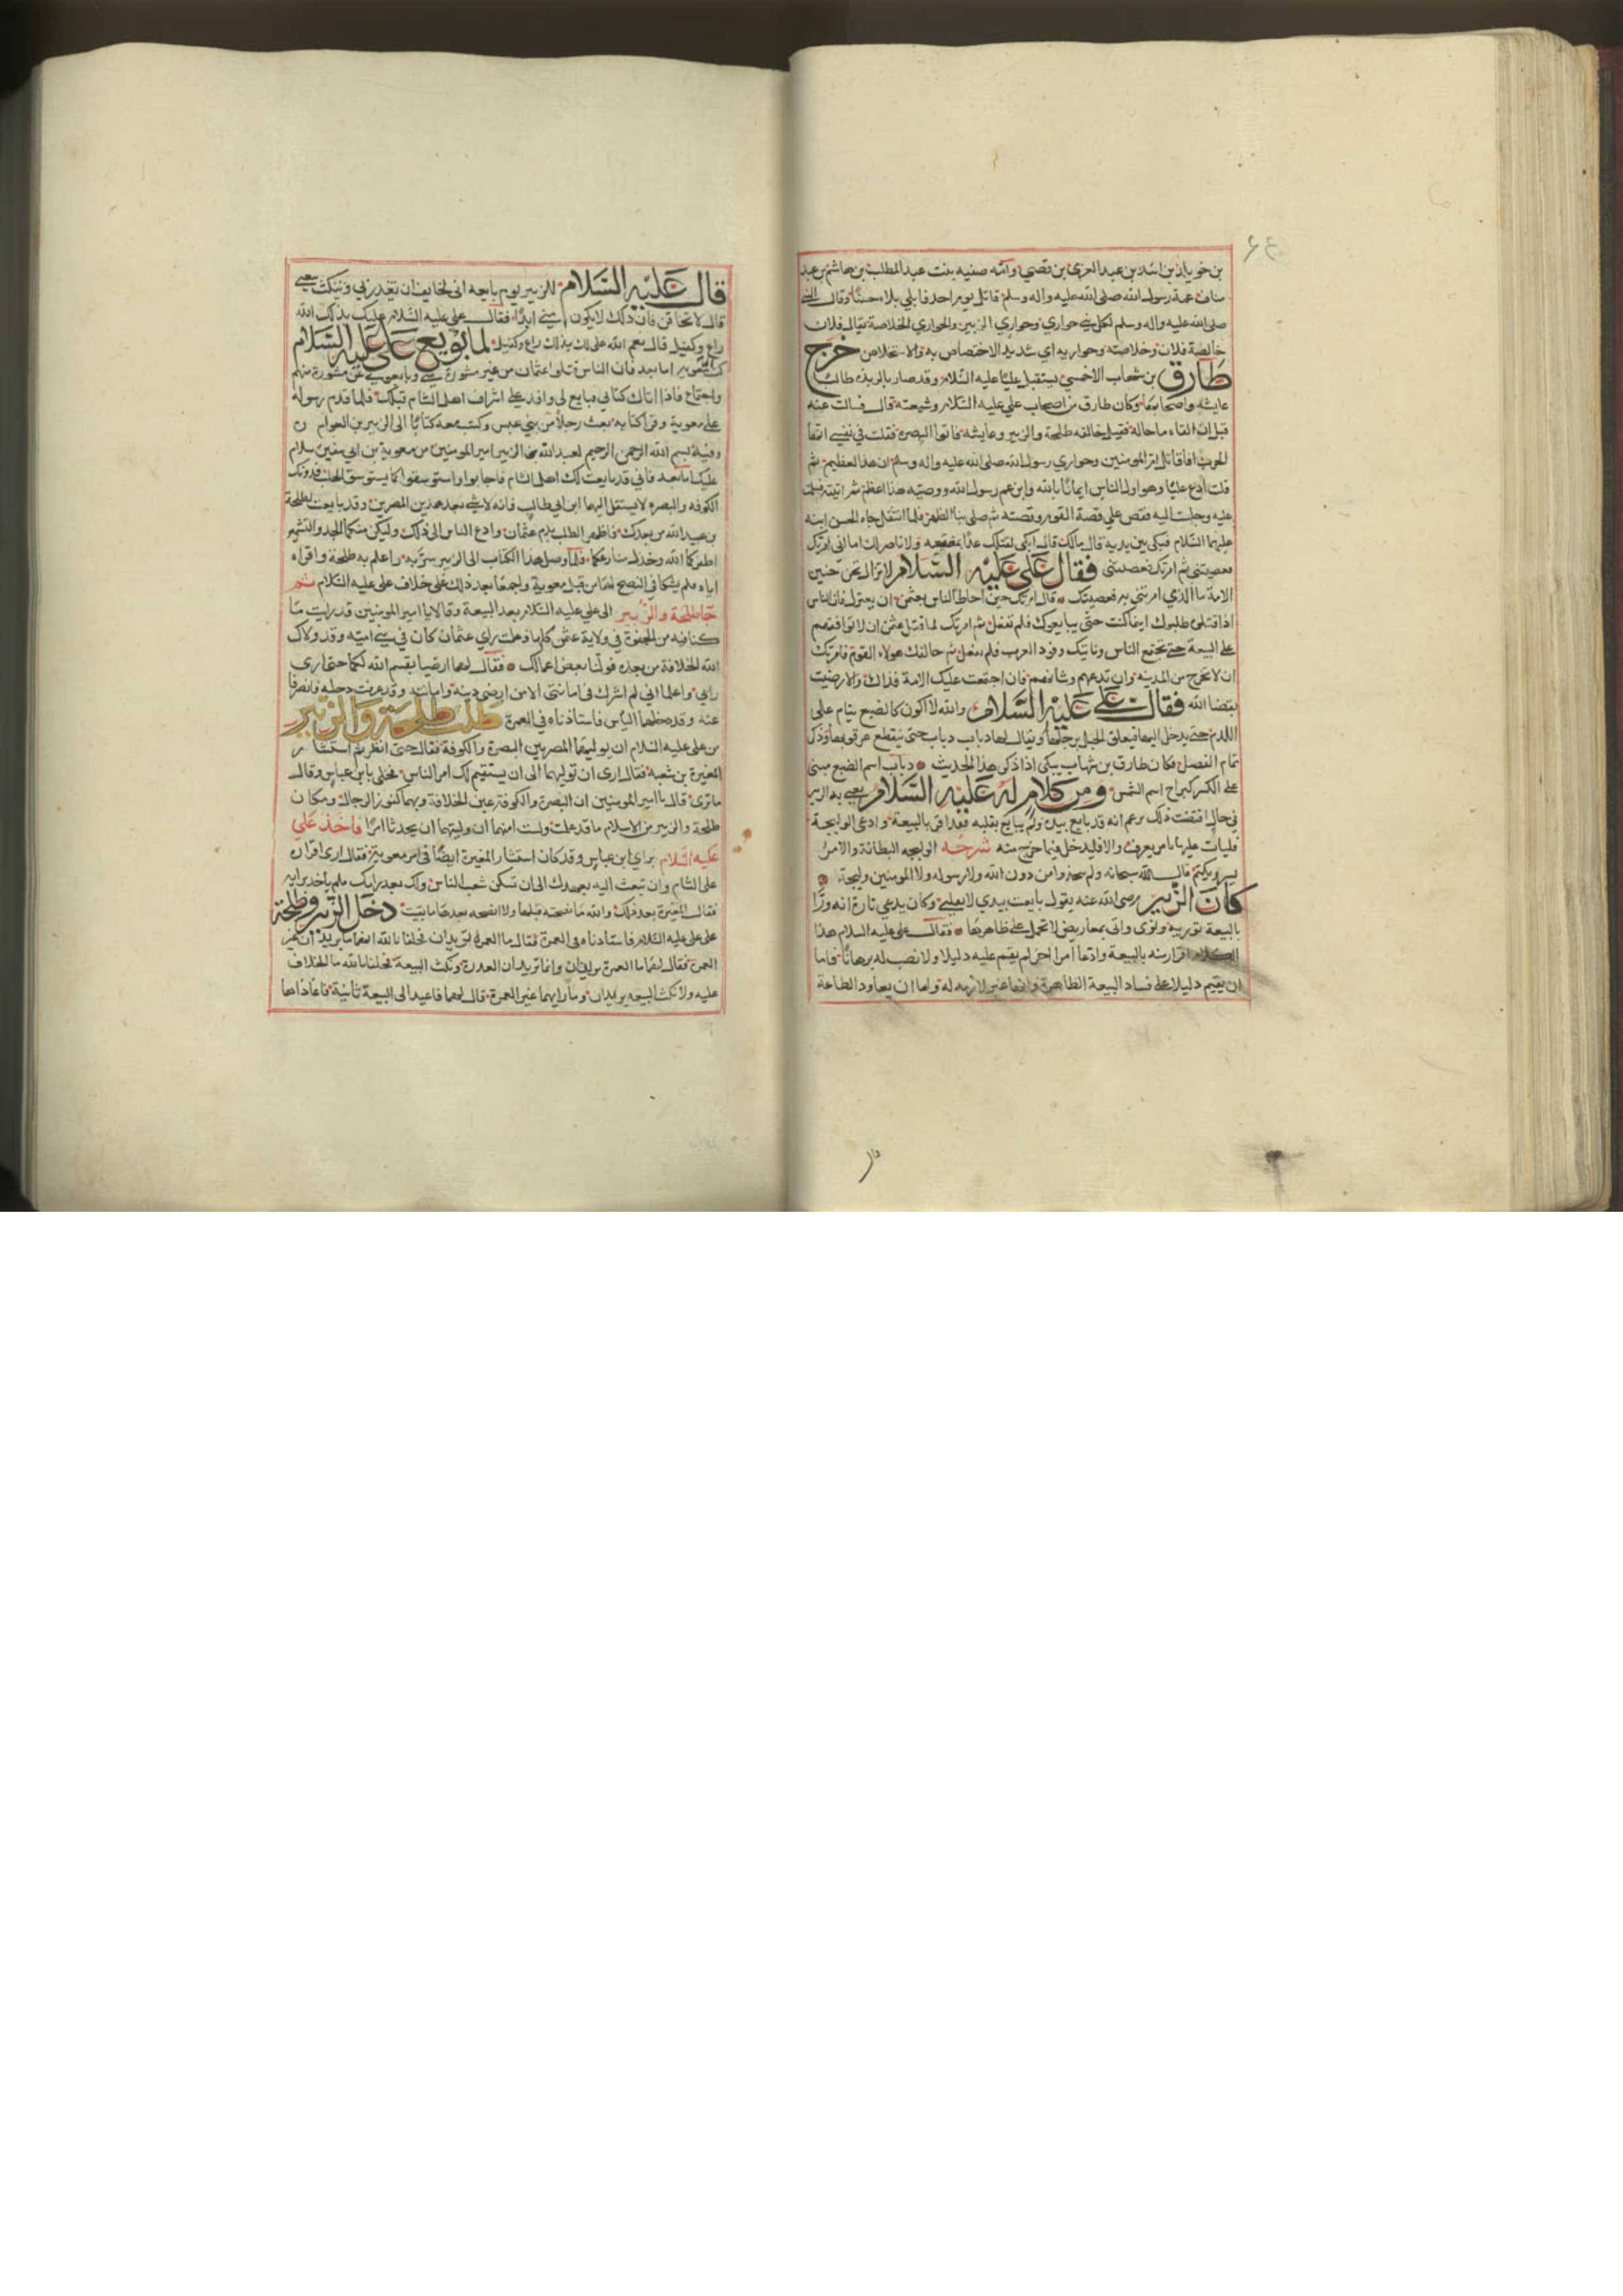 بن خويلد بن اسد بن عبد العزى بن قصي وامه صفيه بنت عبد المطلب بن هاشم بن عبد
مناف عمة رسول الله صلى الله عليه واله وسلم قاتل يوم احد فابلى بلاء حسنا وقال النبي
صلى الله عليه واله وسلم لكل نبي حواري وحواري الزبير والحواري الخلاصة يقال فلان
خالصة فلان وخلاصته وحواريه اي شديد الاختصاص به والاستخلاص خرج
طارق بن شهاب الاحمسي يستقبل عليا عليه السلام وقد صار بالربذه طالبا
عايشه واصحابها وكان طارق من اصحاب علي عليه السلام وشيعته قال فسالت عنه
قبل ان القاه ما حاله فقيل خالفه طلحة والزبير وعايشه فاتوا البصرة فقلت في نفسي انها
الحرب افاقاتل ام المومنين وحواري رسول الله صلى الله عليه واله وسلم ان هذا لعظيم ثم
قلت ادع عليا وهو اول الناس ايمانا بالله وابن عم رسول الله ووصيه هذا اعظم ثم اتيته فسلمت
عليه وجلست اليه فقص علي قصة القوم وقصته ثم صلى بنا الظهر فلما انتقل جاء الحسن ابنه
عليهما السلام فبكى بين يديه قال مالك قال ابكي لقتلك غدا بمضيعه ولا ناصر لك اما اني امرتك
فعصيتني ثم امرتك فعصيتني فقال علي عليه السلام لا تزال تحن حنين
الامة ما الذي امرتني به فعصيتك قال امرتك حين احاط الناس بعثمن ان يعتزل فان الناس
اذا قتلوه طلبوك اينما كنت حتى يبايعوك فلم تفعل ثم امرتك لما قتل عثمن ان لا توافقهم
على البيعة حتى تجتمع الناس وتاتيك وفود العرب فلم تفعل ثم خالفك هولاء القوم فامرتك
ان لا تخرج من المدينه وان تدعهم وشانهم فان اجتمعت عليك الامة فذاك والا رضيت
بقضا الله فقال علي عليه السلام والله لا اكون كالضبع ينام على
اللدم حتى يدخل اليها فيعلق الحبل برجلها ويقال لها دباب دباب حتى يقطع عرقوبها وذكر
تمام الفصل فكان طارق بن شهاب يبكي اذا ذكر هذا الحديث دباب اسم الضبع مبني
على الكسر كبراح اسم الشمس ومن كلام له عليه السلام يعني به الزبير
في حال اقتضت ذلك يزعم انه قد بايع بيده ولم يبايع بقلبه فقد اقر بالبيعة وادعى الوليجة
فليات عليها بامر يعرف والا فليدخل فيما خرج منه شرحه الوليجه البطانة والامر
يسر ويكتم قال الله سبحانه ولم يتخذوا من دون الله ولا رسوله ولا المومنين وليجة
كان الزبير رضى الله عنه يقول بايعت بيدي لا بقلبي وكان يدعي تارة انه ورا
بالبيعة تورية ونوى واتى بمعاريض لا تحمل على ظاهرها فقال علي عليه السلام هذا
الكلام اقرار منه بالبيعة وادعا امر اخر لم يقم عليه دليلا ولا نصب له برهانا فاما
ان يقيم دليلا على فساد البيعة الظاهرة وانها غير لازمه له واما ان يعاود الطاعة
قال
قال عليه السلام للزبير يوم بايعه اني لخايف ان تغدر بي وتنكث بيعتي
قال لا تخافن فان ذلك لا يكون مني ابدا فقال علي عليه السلام عليك بذلك الله
راع وكفيل قال نعم الله علي لك بذلك راع وكفيل لما بويع علي عليه السلام
كتب الى معوية اما بعد فان الناس قتلوا عثمان من غير مشورة مني وبايعوني عن مشورة منهم
واجتماع فاذا اتاك كتابي فبايع لي واوفد علي اشراف اهل الشام قبلك فلما قدم رسوله
على معوية وقرا كتابه بعث رجلا من بني عبس وكتب معه كتابا الى الزبير بن العوام
وفيه بسم الله الرحمن الرحيم لعبد الله الزبير امير المومنين من معوية بن ابي سفين سلام
عليك اما بعد فاني قد بايعت لك اهل الشام فاجابوا واستوسقوا كما يستوسق الجلب فدونك
الكوفه والبصره لا يسبقك اليها ابن ابي طالب فانه لا شي بعد هذين المصرين وقد بايعت لطلحة
بن عبيد الله من بعدك فاظهرا الطلب بدم عثمان وادعوا الناس الى ذلك وليكن منكما الجد والتشمير
اظفركما الله وخذل مناوئكما فلما وصل هذا الكتاب الى الزبير سر به واعلم به طلحة واقراه
اياه فلم يشكا في النصح لهما من قبل معوية واجمعا بعد ذلك على خلاف علي عليه السلام ثم
جا طلحة والزبير الى علي عليه السلام بعد البيعة وقالا يا امير المومنين قد رايت ما
كنا فيه من الجفوة في ولاية عثمن كلها وعلمت راي عثمان كان في بني اميه وقد ولاك
الله الخلافة من بعده فولنا بعض اعمالك فقال لهما ارضيا بقسم الله لكما حتى ارى
رايي واعلما اني لم اشرك في امانتي الا من ارضى دينه وامانته وقد عرفت دخيلته فانصرفا
عنه وقد دخلهما الياس فاستاذناه في العمرة طلب طلحة والزبير
من علي عليه السلام ان يوليهما المصرين البصرة والكوفة فقال حتى انظر ثم استشار
المغيرة بن شعبة فقال ارى ان توليهما الى ان يستقيم لك امر الناس فخلى بابن عباس وقال
ما ترى قال يا امير المومنين ان البصرة والكوفة عين الخلافة وبهما كنوز الرجال ومكان
طلحة والزبير من الاسلام ما قد علمت ولست امنهما ان وليتهما ان يحدثا امرا فاخذ علي
عليه السلام براي ابن عباس وقد كان استشار المغيرة ايضا في امر معوية فقال ارى اقراره
على الشام وان تبعث اليه بعهدك الى ان تسكن شغب الناس ولك بعد رايك فلم ياخذ برايه
فقال المغيرة بعد ذلك والله ما نصحته قبلها ولا انصحه بعدها ما بقيت دخل الزبير وطلحة
على علي عليه السلام فاستاذناه في العمرة فقال ما العمرة تريدان فحلفا بالله انهما ما يريدان غير
العمرة فقال لهما ما العمرة تريدان وانما تريدان الغدرة ونكث البيعة فحلفا بالله ما الخلاف
عليه ولا نكث البيعه يريدان وما رايهما غير العمرة قال لهما فاعيدا لي البيعة ثانية فاعاداها